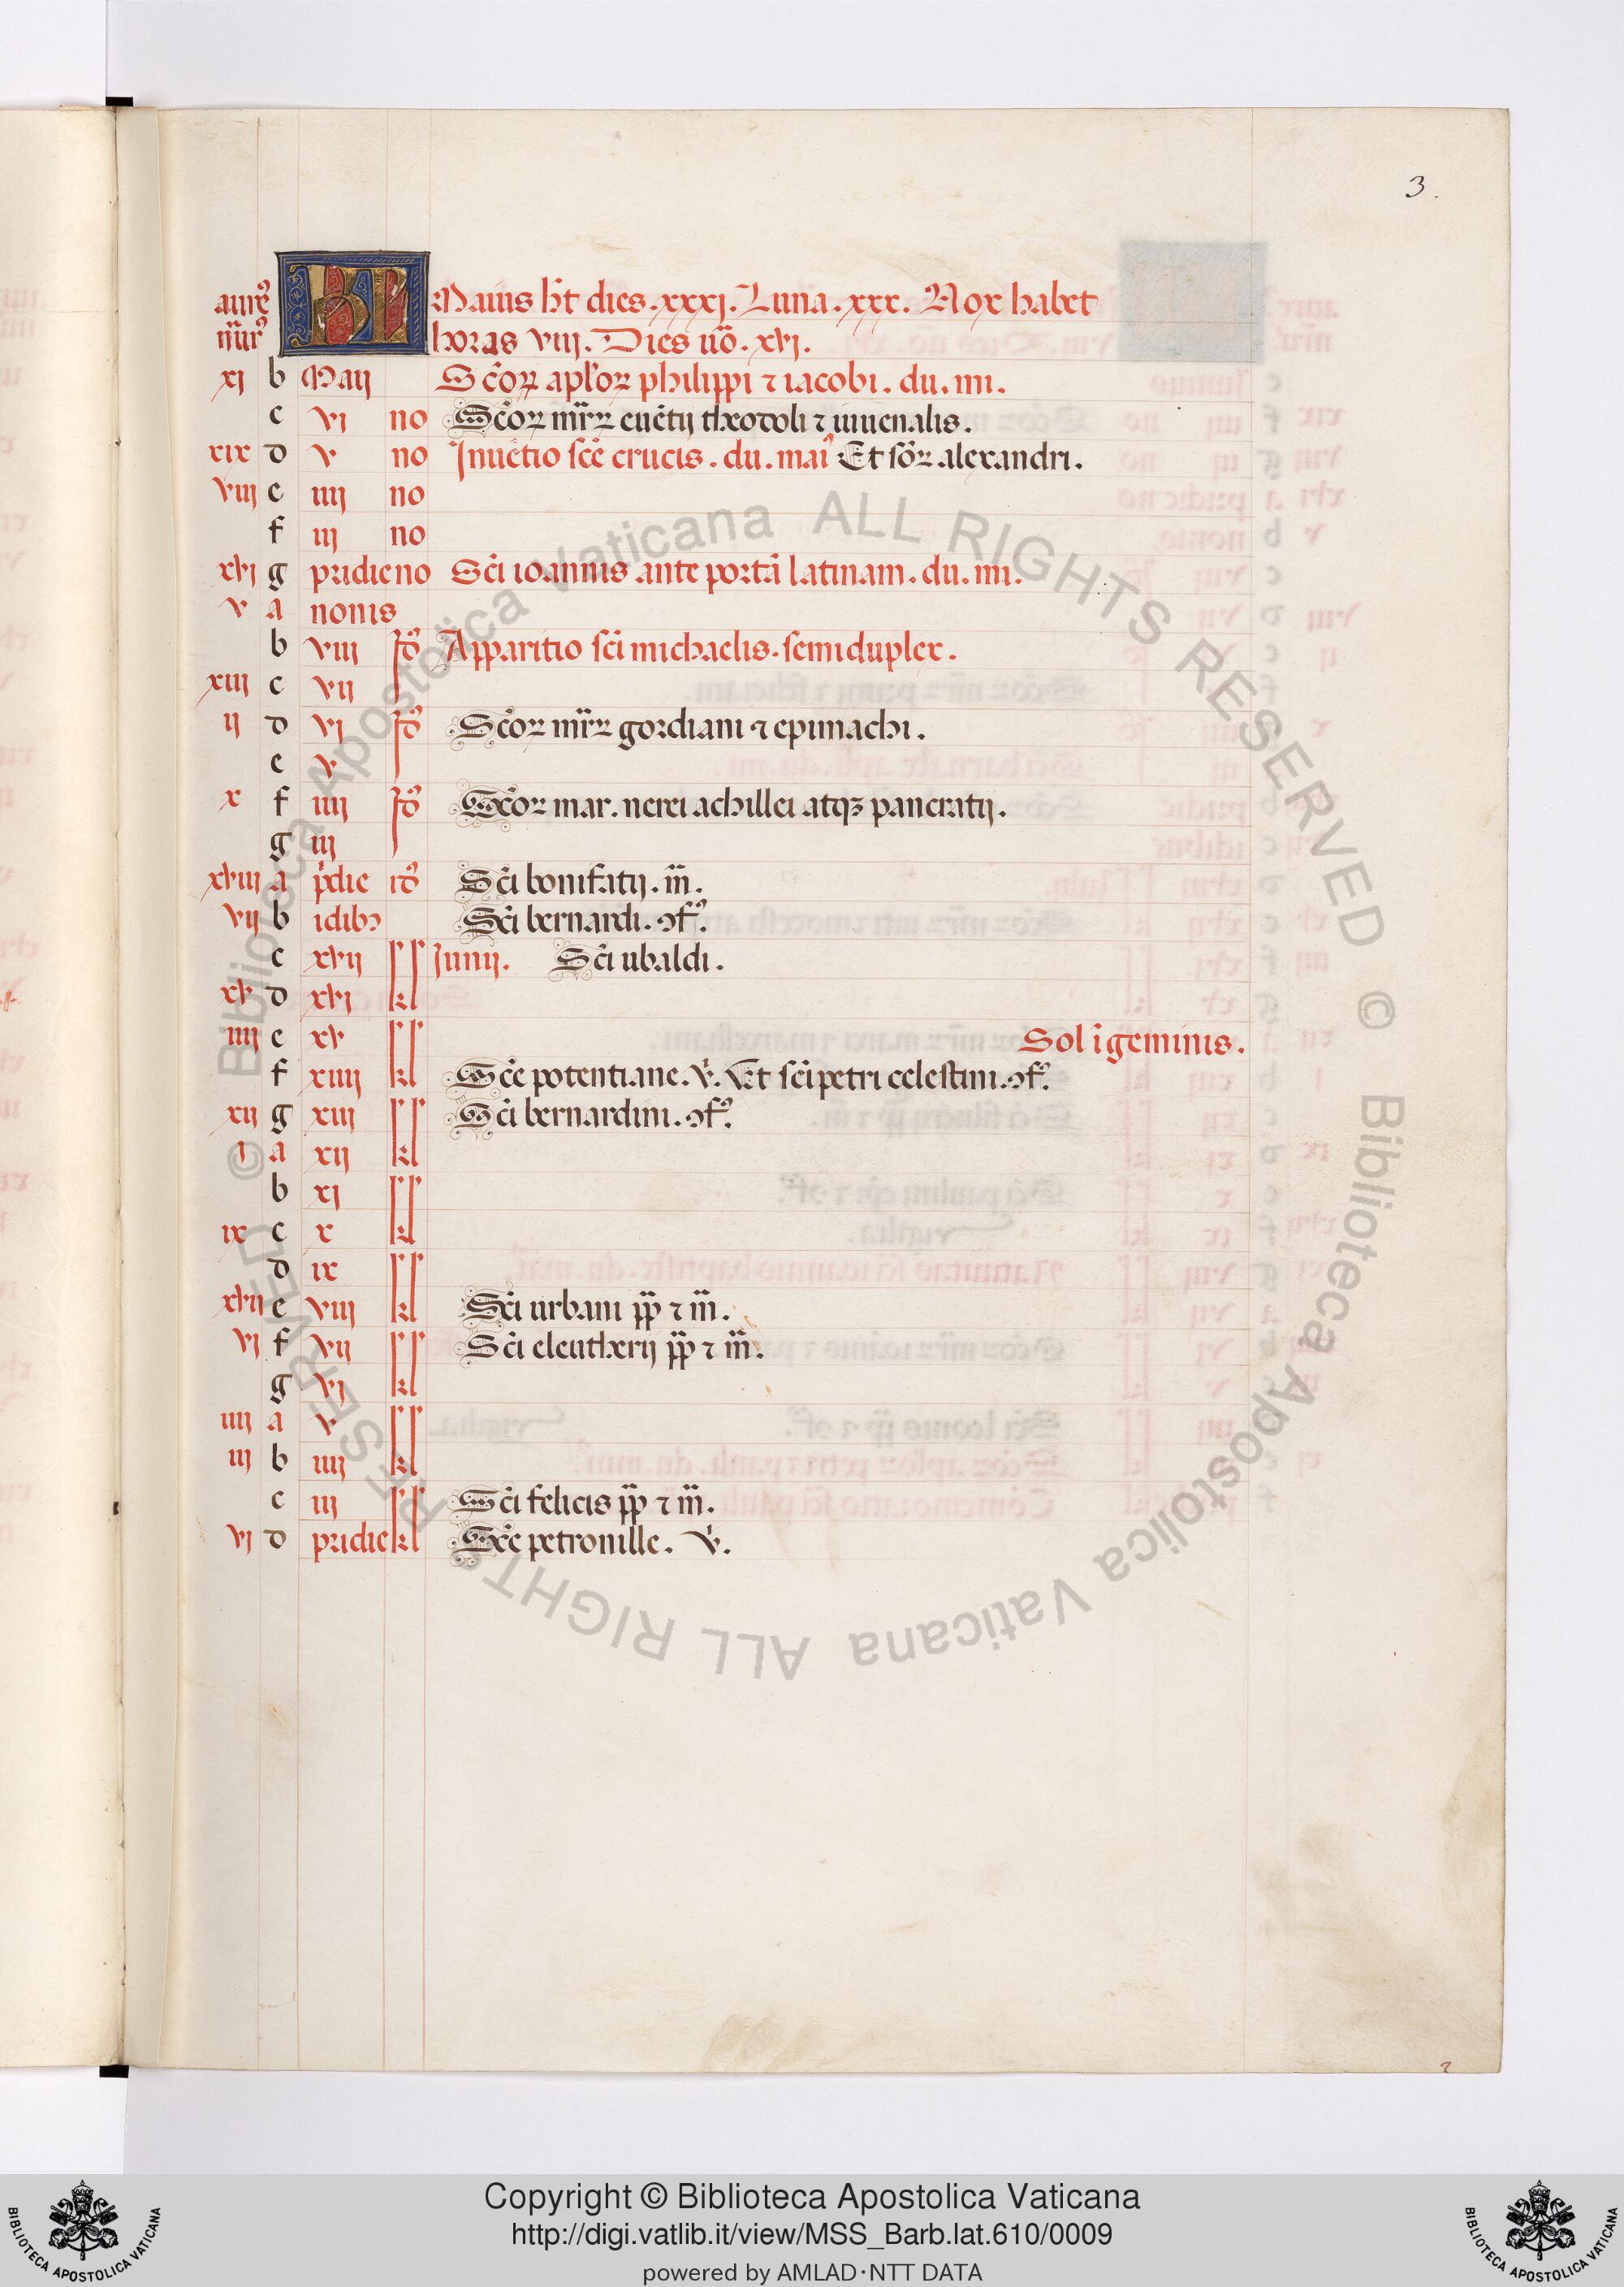 3.
aureꝰ KL Maius h̄t dies .xxxj. Luna .xxx. Nox habet
nūrꝰ horas viij. Dies u͞o. xvj.
xj b Maij Sc̄oꝝ apl̄oꝝ philippi ⁊ iacobi. du. mi.
c vj no Sc̄oꝝ mr̄ꝝ euētij theodoli ⁊ iuuenalis.
xix d v no Inuētio sc̄e crucis. du. mai Et sc̄oꝝ alexandri.
viij e iiij no
f iij no
xvj g pridie no Sc̄i ioannis ante portā latinam. du. mi.
v a nonis
b viij Idꝰ Apparitio sc̄i michaelis. semiduplex.
xiij c vij
ij d vj Idꝰ Sc̄oꝝ mr̄ꝝ gordiani ⁊ epimachi.
e v
x f iiij Idꝰ Sc̄oꝝ mar. nerei achillei atqꝫ pancratij.
g iij
xviij a p̄die idꝰ Sc̄i bonifatij. m̄.
vij b idibꝰ Sc̄i bernardi. ↄfꝰ.
c xvij Junij. Sc̄i ubaldi.
xv d xvj kl
iiij e xv Sol ī geminis.
f xiiij kl Sc̄e potentiane. v̄. Et sc̄i petri celestini. ↄfꝰ.
xij g xiij Sc̄i bernardini. ↄfꝰ.
i a xij kl
b xj
ix c x kl
d ix
xvij e viij kl Sc̄i urbani pp̄ ⁊ m̄.
vj f vij Sc̄i eleutherij pp̄ ⁊ m̄.
g vj kl
iiij a v
iij b iiij kl
c iij Sc̄i felicis pp̄ ⁊ m̄.
vj d pridie kl Sc̄e petronille. v̄.
© Biblioteca Apostolica Vaticana ALL RIGHTS RESERVED © Biblioteca Apostolica Vaticana ALL RIGHTS RESERVED
Copyright © Biblioteca Apostolica Vaticana
http://digi.vatlib.it/view/MSS_Barb.lat.610/0009
powered by AMLAD・NTT DATA
BIBLIOTECA APOSTOLICA VATICANA
BIBLIOTECA APOSTOLICA VATICANA